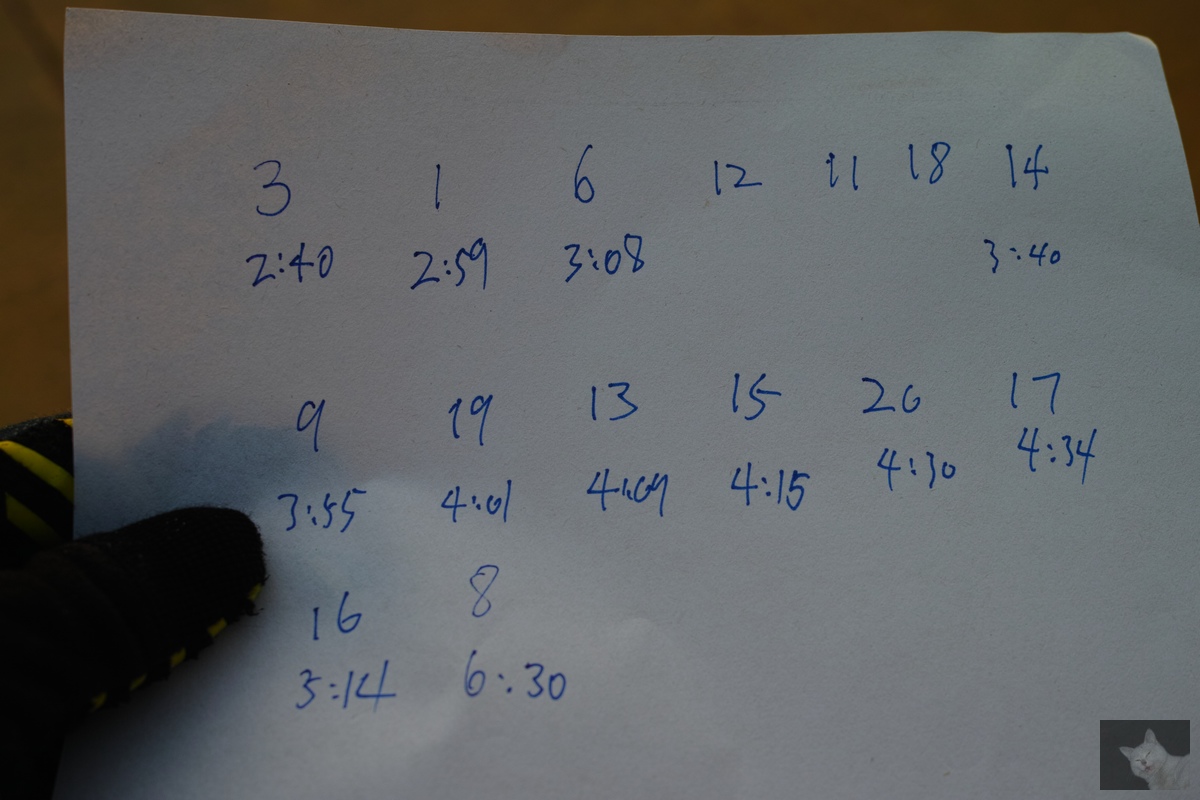 3 1 6 12 11 18 14
2:40 2:59 3:08 3:40
9 19 13 15 20 17
3:55 4:01 4:09 4:15 4:30 4:34
16 8
5:14 6:30